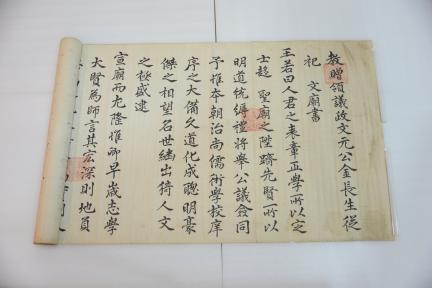 敎贈領議政文元公金長生從
祀 文廟書
王若曰人君之表章正學所以定
士趍 聖廟之陞躋先賢所以
明道統縟禮將擧公議僉同
予推夲朝治尙儒術學校庠
序之大備久道化成聰明豪
傑之相望名世繼出猗人文
之極盛逮
宣廟而尤隆惟卿早歳志學
大賢爲師言其宏深則地負